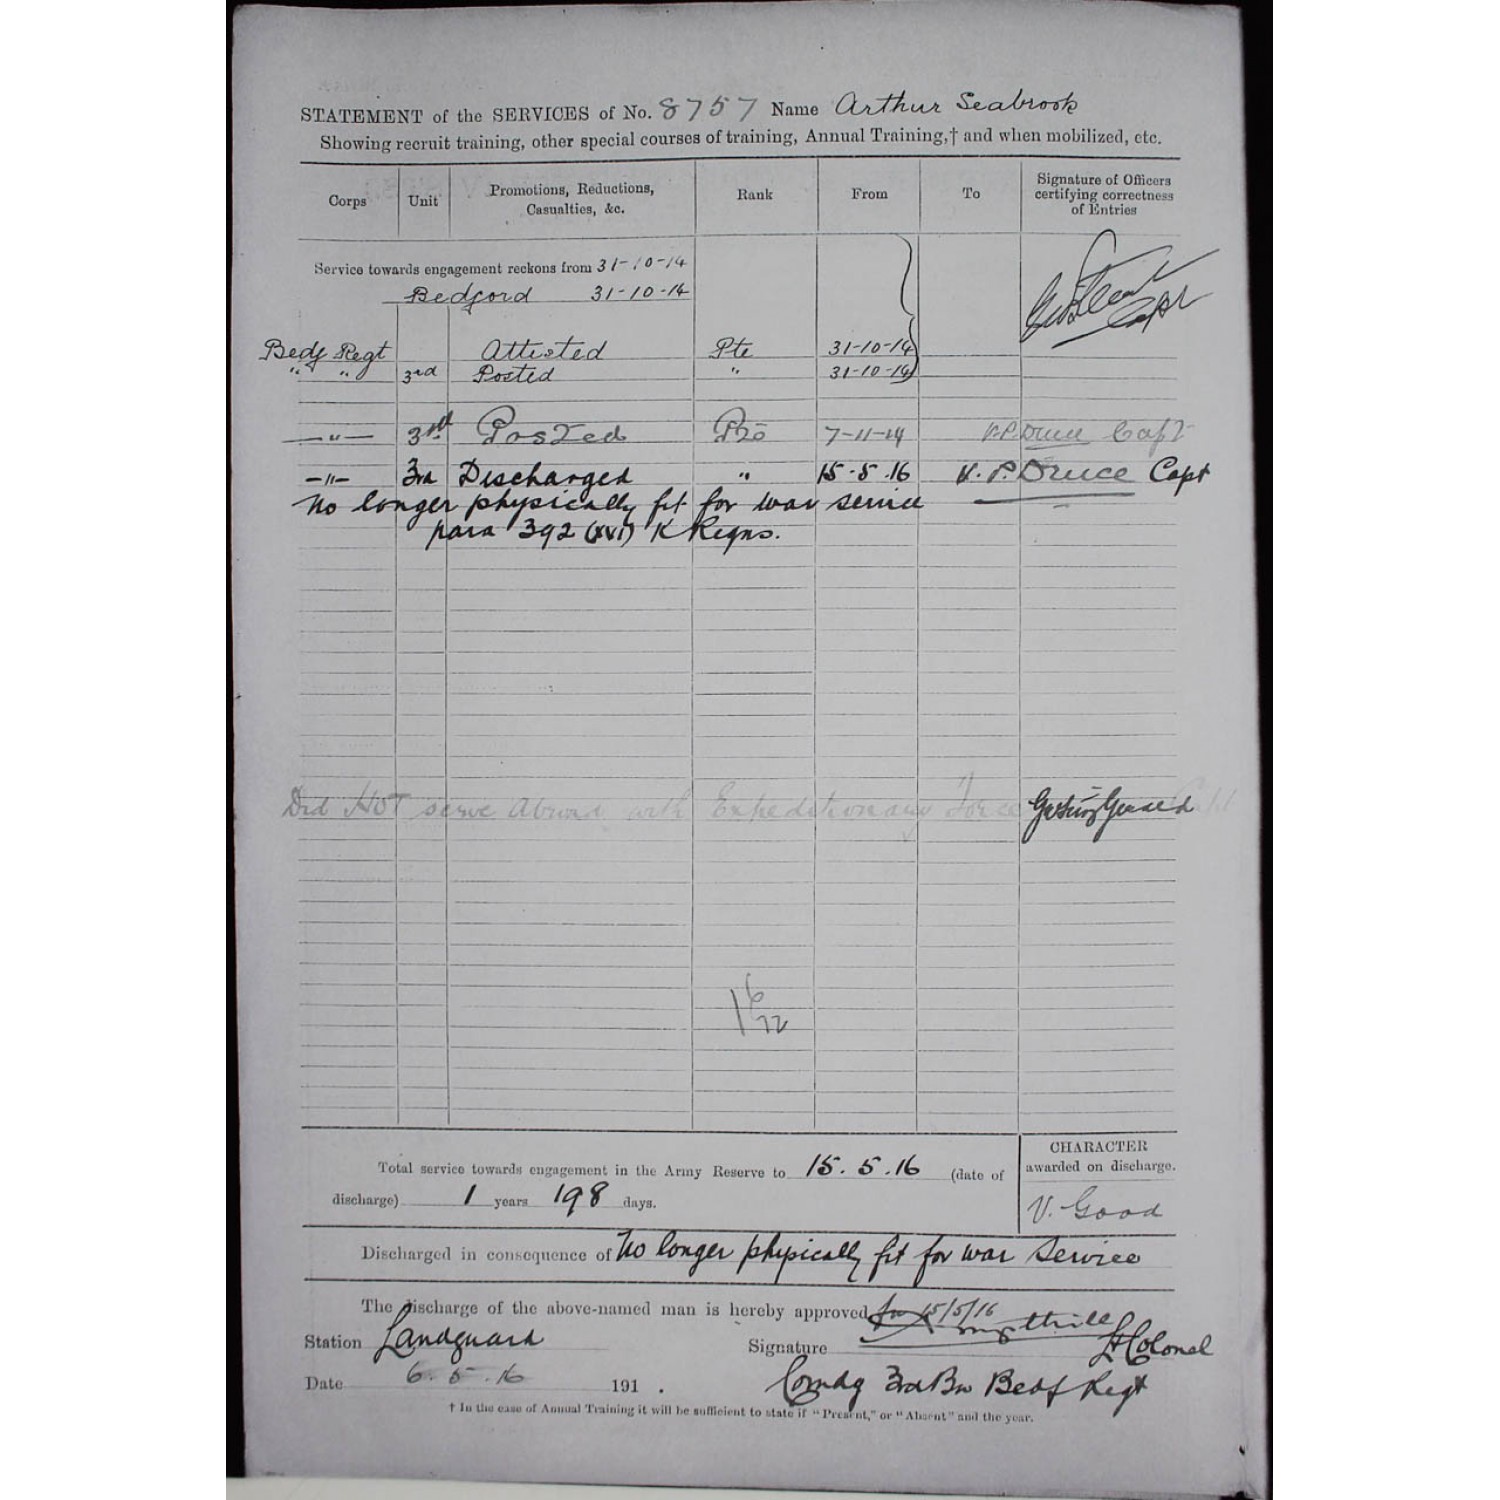 STATEMENT of the SERVICES of No. 8757 Name Arthur Seabrook
Showing recruit training, other special courses of training, Annual Training,† and when mobilized, etc.
Corps Unit Promotions, Reductions, Casualties, &c. Rank From To Signature of Officers certifying correctness of Entries
Service towards engagement reckons from 31-10-14
Bedford 31-10-14
Capt
Bedf Regt Attested Pte 31-10-14
" " 3rd Posted " 31-10-14
—"— 3rd Posted 7-11-14 V.P. Druce Capt
—"— 3rd Discharged " 15.5.16 V.P. Druce Capt
No longer physically fit for war service
para 392 (XVI) K Regns.
Did NOT serve Abroad with Expeditionary Force
1 6/72
Total service towards engagement in the Army Reserve to 15.5.16 (date of
discharge) 1 years 198 days.
CHARACTER
awarded on discharge.
V. Good
Discharged in consequence of No longer physically fit for war service
The discharge of the above-named man is hereby approved for 15/5/16
Station Landguard Signature Lt Colonel
Date 6.5.16 191 . Comdg 3rd Bn Bedf Regt
† In the case of Annual Training it will be sufficient to state if "Present," or "Absent" and the year.